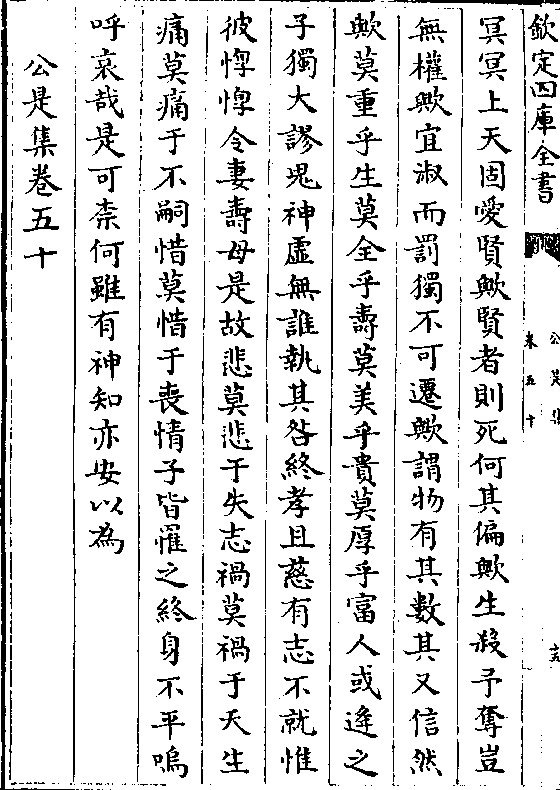 欽定四庫全書
公是集
卷五十
冥冥上天固愛賢歟賢者則死何其偏歟生殺予奪豈
無權歟宜淑而罰獨不可遷歟謂物有其數其又信然
歟莫重乎生莫全乎壽莫美乎貴莫厚乎富人或逢之
子獨大謬鬼神虛無誰執其咎終孝且慈有志不就惟
彼惸惸令妻壽母是故悲莫悲于失志禍莫禍于夭生
痛莫痛于不嗣惜莫惜于喪情子皆罹之終身不平嗚
呼哀哉是可柰何雖有神知亦安以為
公是集卷五十